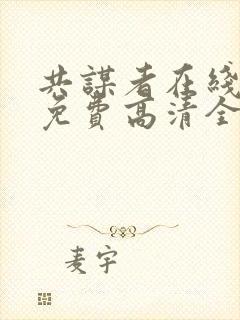 共謀者在綫
免費高清全
麦宇